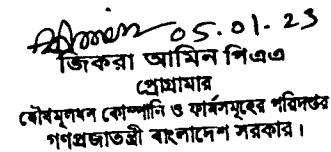 05.01.23
জিকরা আমিন পিএএ
প্রোগ্রামার
যৌথমূলধন কোম্পানি ও ফার্মসমূহের পরিদপ্তর
গণপ্রজাতন্ত্রী বাংলাদেশ সরকার।